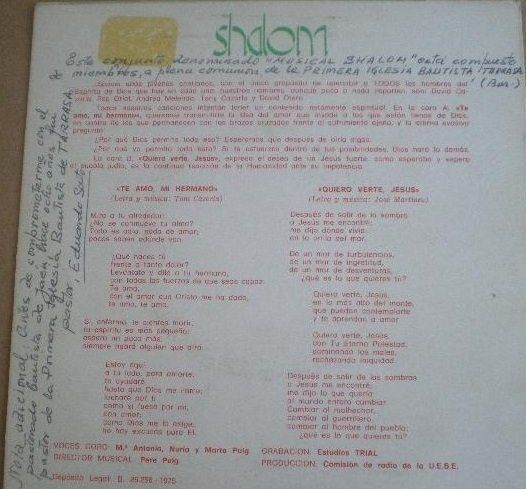 shalom
Este conjunto, denominado "MUSICAL SHALOM" esta compuesto
miembros, a plena comunion de la PRIMERA IGLESIA BAUTISTA TARRASA
(Bna.)
Somos unos jóvenes cristianos, con el único propósito de acercar a TODOS los hombres del
Espíritu de Dios que hay en cada uno. Nuestros nombres, aunque poco o nada importan, son: David
Pep Oriol, Andreu Melendo, Tony Cazorla y David Otero.
Nuestras canciones intentan tener un contenido netamente espiritual. En la cara A, «Te
amo, mi hermano», queremos transmitirte la idea del amor que invade a los que están llenos de Dios,
en contra de los que permanecen con los brazos cruzados frente al sufrimiento ajeno, y la eterna
pregunta:
¿Por qué Dios permite todo eso? Esperamos que después de oirla digas:
¿Por qué yo permito todo esto? Si te esfuerzas dentro de tus posibilidades, Dios hará lo demás.
La cara B, «Quiero verte, Jesús», expresa el deseo de un Jesús fuerte, como esperaba y espera
el pueblo judío, es la continua reacción de la Humanidad ante su impotencia.
«TE AMO, MI HERMANO»
(Letra y música: Toni Cazorla)
Mira a tu alrededor:
¿No se conmueve tu alma?
Todo es odio, nada de amor;
pocos saben adonde van.
¿Qué haces tú
frente a tanto dolor?
Levántate y dile a tu hermano,
con todas las fuerzas de que seas capaz:
Te amo,
con el amor que Cristo me ha dado,
te amo, te amo.
Si, enfermo, te sientes morir,
tu espíritu es más pequeño,
espera un poco más,
siempre habrá alguien que dirá:
Estoy aquí,
a tu lado, para amarte,
te ayudaré
hasta que Dios me llame;
lucharé por ti
como si fuese por mí,
con amor,
como Dios me lo exige;
no hay excusas para El.
«QUIERO VERTE, JESUS»
(Letra y música: José Martínez)
Después de salir de la sombra
a Jesús me encontré;
me dijo dónde vivía:
en la orilla del mar.
De un mar de turbulencias,
de un mar de ingratitud,
de un mar de desventuras,
¿qué es lo que quieres tú?
Quiero verte, Jesús,
en lo más alto del monte,
que puedan contemplarte
y te aprendan a amar.
Quiero verte, Jesús,
con Tu Eterna Potestad,
dominando los males,
rechazando iniquidad.
Después de salir de las sombras
a Jesús me encontré;
me dijo lo que quería:
al mundo entero cambiar.
Cambiar al malhechor,
cambiar al guerrillero,
cambiar al hombre del pueblo;
¿qué es lo que quieres tú?
VOCES CORO: M.ª Antonia, Nuria y Marta Puig
DIRECTOR MUSICAL: Pere Puig
GRABACION: Estudios TRIAL
PRODUCCION: Comisión de radio de la U.E.B.E.
Depósito Legal: B. 25.256 - 1975
Nota adicional: Antes de comprometerme con el
pastorado bautista de Jaén, hace ocho años fui
pastor de la Primera Iglesia Bautista de TARRASA.
pastor, Eduardo